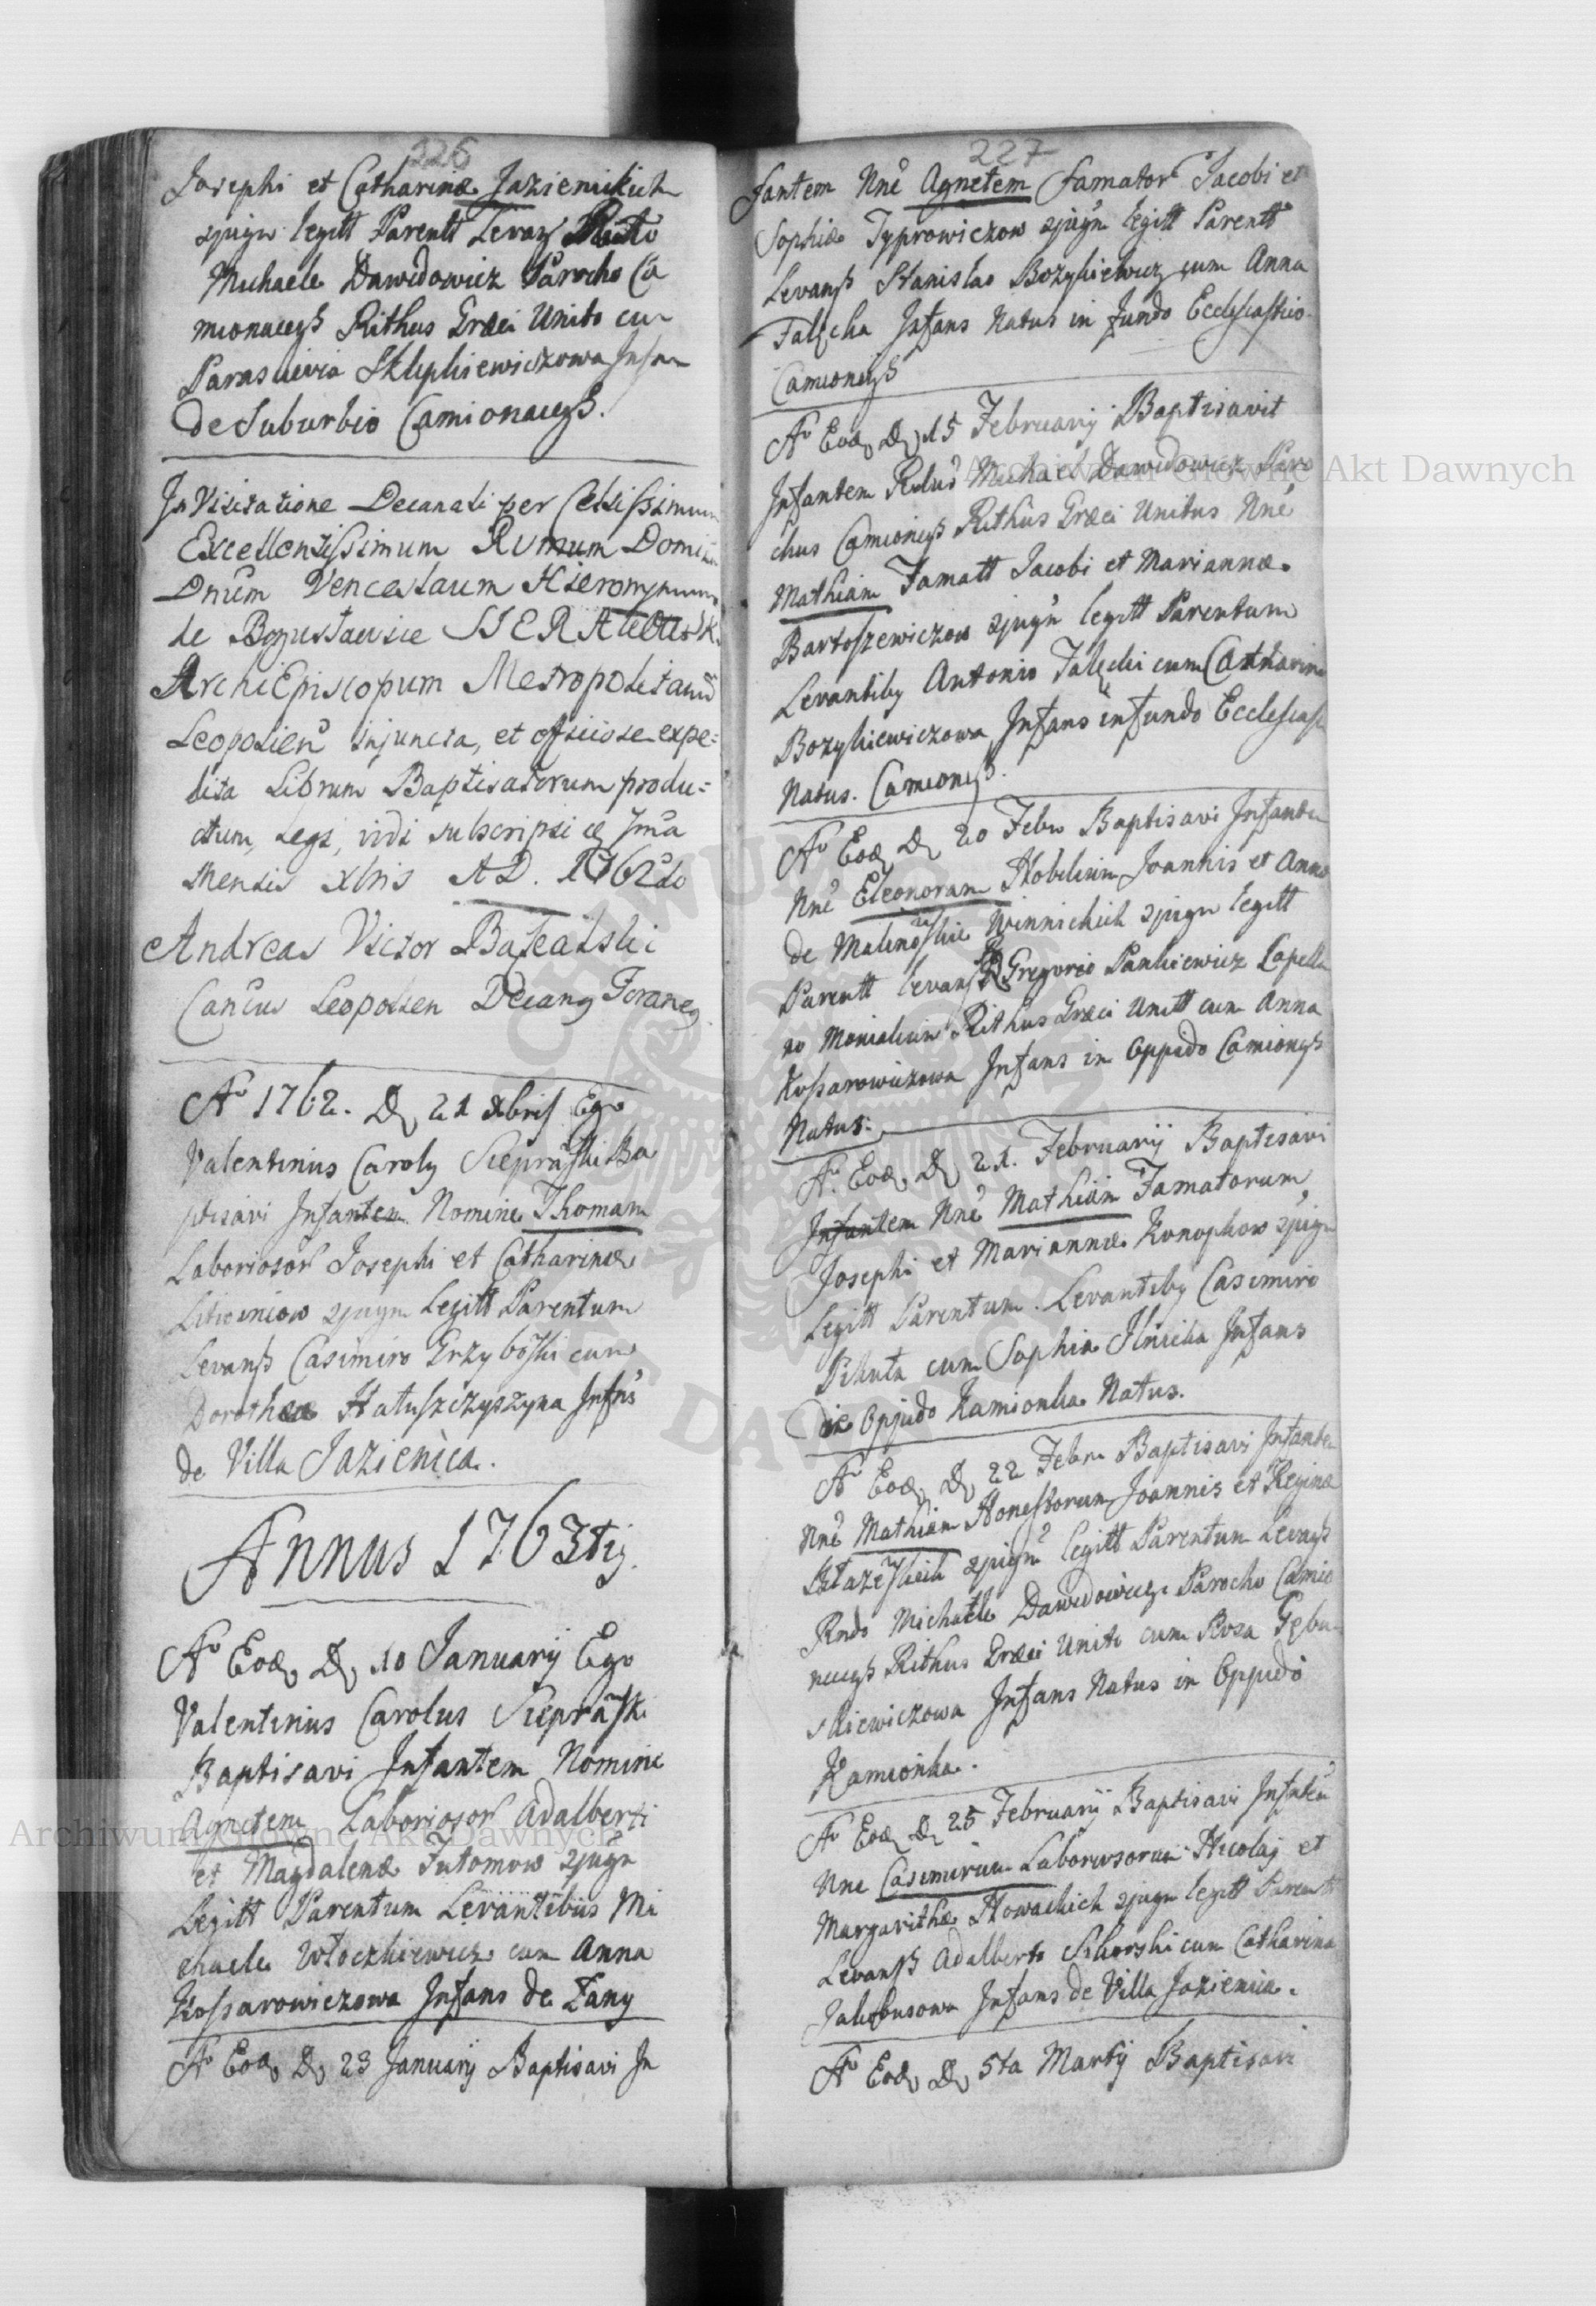 226
Josephi et Catharinæ Jazienickich
zjugu legitt Parentt Levan
Michaele Dawidowicz Parocho Ca
mionacens Rithus Græci Unito cu
Parasuevia Sklepkiewiczowa Infan
de Suburbio Camionacens.
In Visitatione Decanali per Celsissimum
Excellentissimum Rvmum Domin
Dnum Venceslaum Hieronymum
de Bogusławice SIERAKOWSK
ArchiEpiscopum Metropolitanu
Leopolien injuncta, et officiose expe=
dita Librum Baptisatorum produ=
ctum, Legi, vidi subscripsi
Mensis Xbris AD. 1762do
Andreas Victor
Leopolien Decanus Foraneus
Ao 1762. D 21 Xbris Ego
Valentinus Carolus Siepraski Ba
ptisavi Infantem Nomine Thomam
Laboriosor Josephi et Catharinæ
zjugu Legitt Parentum
Levans Casimiro Grzyboski cum
Dorothea Hatuszczyszyna Infns
de Villa Jazienica.
Annus 1763tis.
Ao Eod D 10 Januarij Ego
Valentinus Carolus Siepraski
Baptisavi Infantem Nomine
Agnetem Laboriosor Adalberti
et Magdalenæ Futomow zjugu
Legitt Parentum Levantibus Mi
chaele Włoczkiewicz cum Anna
Kossarowiczowa Infans de Łany
Ao Eod D 23 Januarij Baptisavi In
227
fantem Nne Agnetem famator Jacobi et
Sophiæ Typrowiczow zjugu legitt Parentt
Levans Stanislao Bozykiewicz cum Anna
Infans Natus in fundo Ecclesiastico
Camionens
Ao Eod D 15 Februarij Baptisavit
Infantem Rdus Michael Dawidowicz Paro
chus Camionens Rithus Græci Unitus Nne
Mathiam Famatt Jacobi et Mariannæ
Bartoszewiczow zjugu legitt Parentum
Levantibus Antonio cum Catharina
Bozykiewiczowa Infans in fundo Ecclesias
Natus. Camionens.
Ao Eod D 20 Febr Baptisavi Infantem
Nne Eleonoram Nobilium Joannis et Annæ
de Malinoskie Winnickich zjugu legitt
Parentt levans R Gregorio Pankiewicz Capella
no Monialium Rithus Græci Unitt cum Anna
Kossarowiczowa Infans in Oppido Camionens
Natus.
Ao Eod D 21. Februarij Baptisavi
Infantem Nne Mathiam Famatorum
Josephi et Mariannæ Konopkow zjugu
Legitt Parentum. Levantibus Casimiro
Pikuta cum Sophia Infans
de Oppido Kamionka Natus.
Ao Eod D 22 Febr Baptisavi Infantem
Nne Mathiam Honestorum Joannis et Reginæ
Błażeskich zjugu legitt Parentum Levans
Rndo Michaele Dawidowicz Parocho Camio
nacens Rithus Græci Unito cum Rosa Gębu
skiewiczowa Infans Natus in Oppido
Kamionka.
Ao Eod D 25 Februarij Baptisavi Infantem
Nne Casimirum Laboriosorum Nicolaj et
Margarithæ Nowackich zjugu legitt Parentt
Levans Adalberto Sikorski cum Catharina
Jakobusowa Infans de Villa Jazienica.
Ao Eod D 5ta Martij Baptisavi
Archiwum Główne Akt Dawnych
Archiwum Główne Akt Dawnych